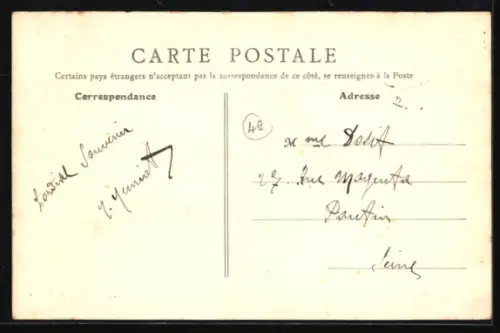 CARTE POSTALE
Certains pays étrangers n'acceptant pas la correspondance de ce côté, se renseigner à la Poste
Correspondance
Adresse
48
Cordial Souvenir
Mme
27 Rue Magenta
Pantin
Seine